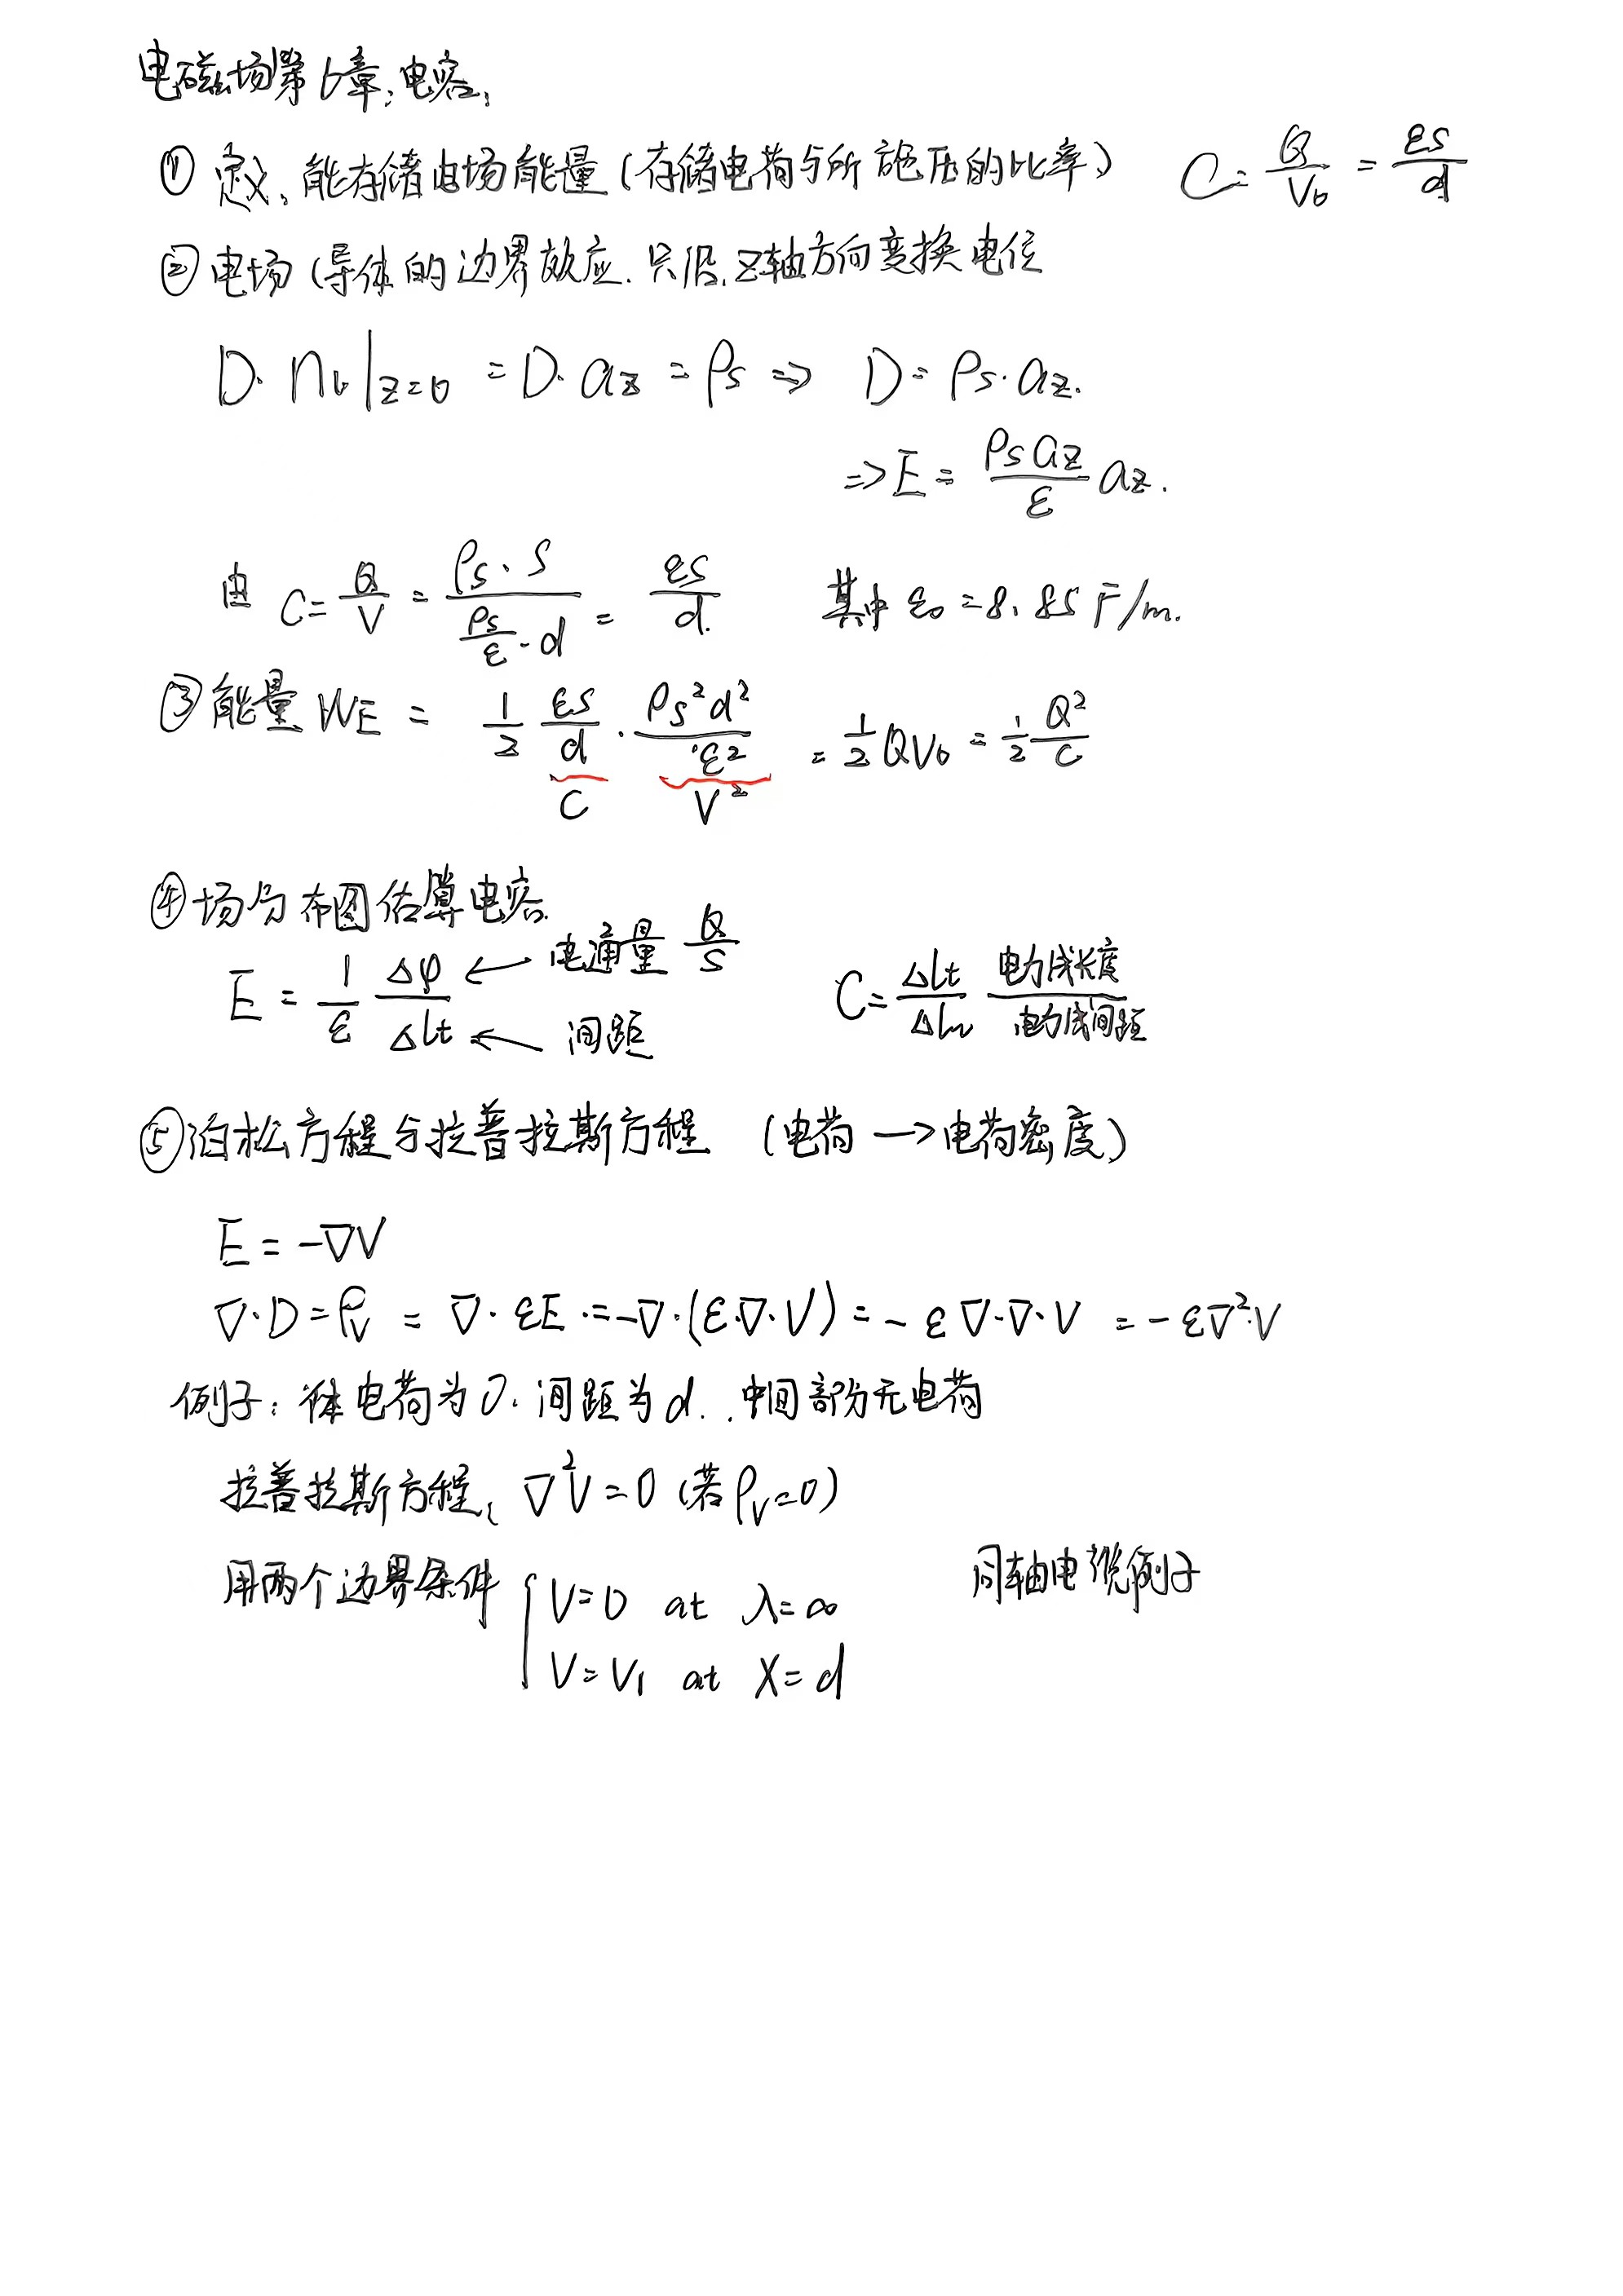 电磁场第6章：电容：
① 定义：能存储电场能量（存储电荷与所施压的比率） C = Q/V₀ = εS/d
② 电场（导体的边界效应．只沿z轴方向变换电位
D · n₁|z=0 = D · az = ρs => D = ρs · az.
=> E = ρs az/ε az.
由 C = Q/V = ρs · S / (ρs/ε · d) = εS/d. 其中 ε₀ = 8.85 F/m.
③ 能量 WE = 1/2 εS/d · ρs²d²/ε² = 1/2 QV₀ = 1/2 Q²/C
C V²
④ 场分布图估算电容．
E = 1/ε Δψ/ΔLt ← 电通量 Q/S C = ΔLt/ΔLn 电力线长度/电力线间距
← 间距
⑤ 泊松方程与拉普拉斯方程 （电荷 → 电荷密度）
E = -∇V
∇·D = ρv = ∇· εE = -∇·(ε·∇·V) = -ε∇·∇·V = -ε∇²·V
例子：体电荷为0．间距为d．．中间部分无电荷
拉普拉斯方程：∇²V = 0（若 ρv = 0）
用两个边界条件 { V = 0 at λ = ∞ 同轴电缆例子
V = V₁ at X = d